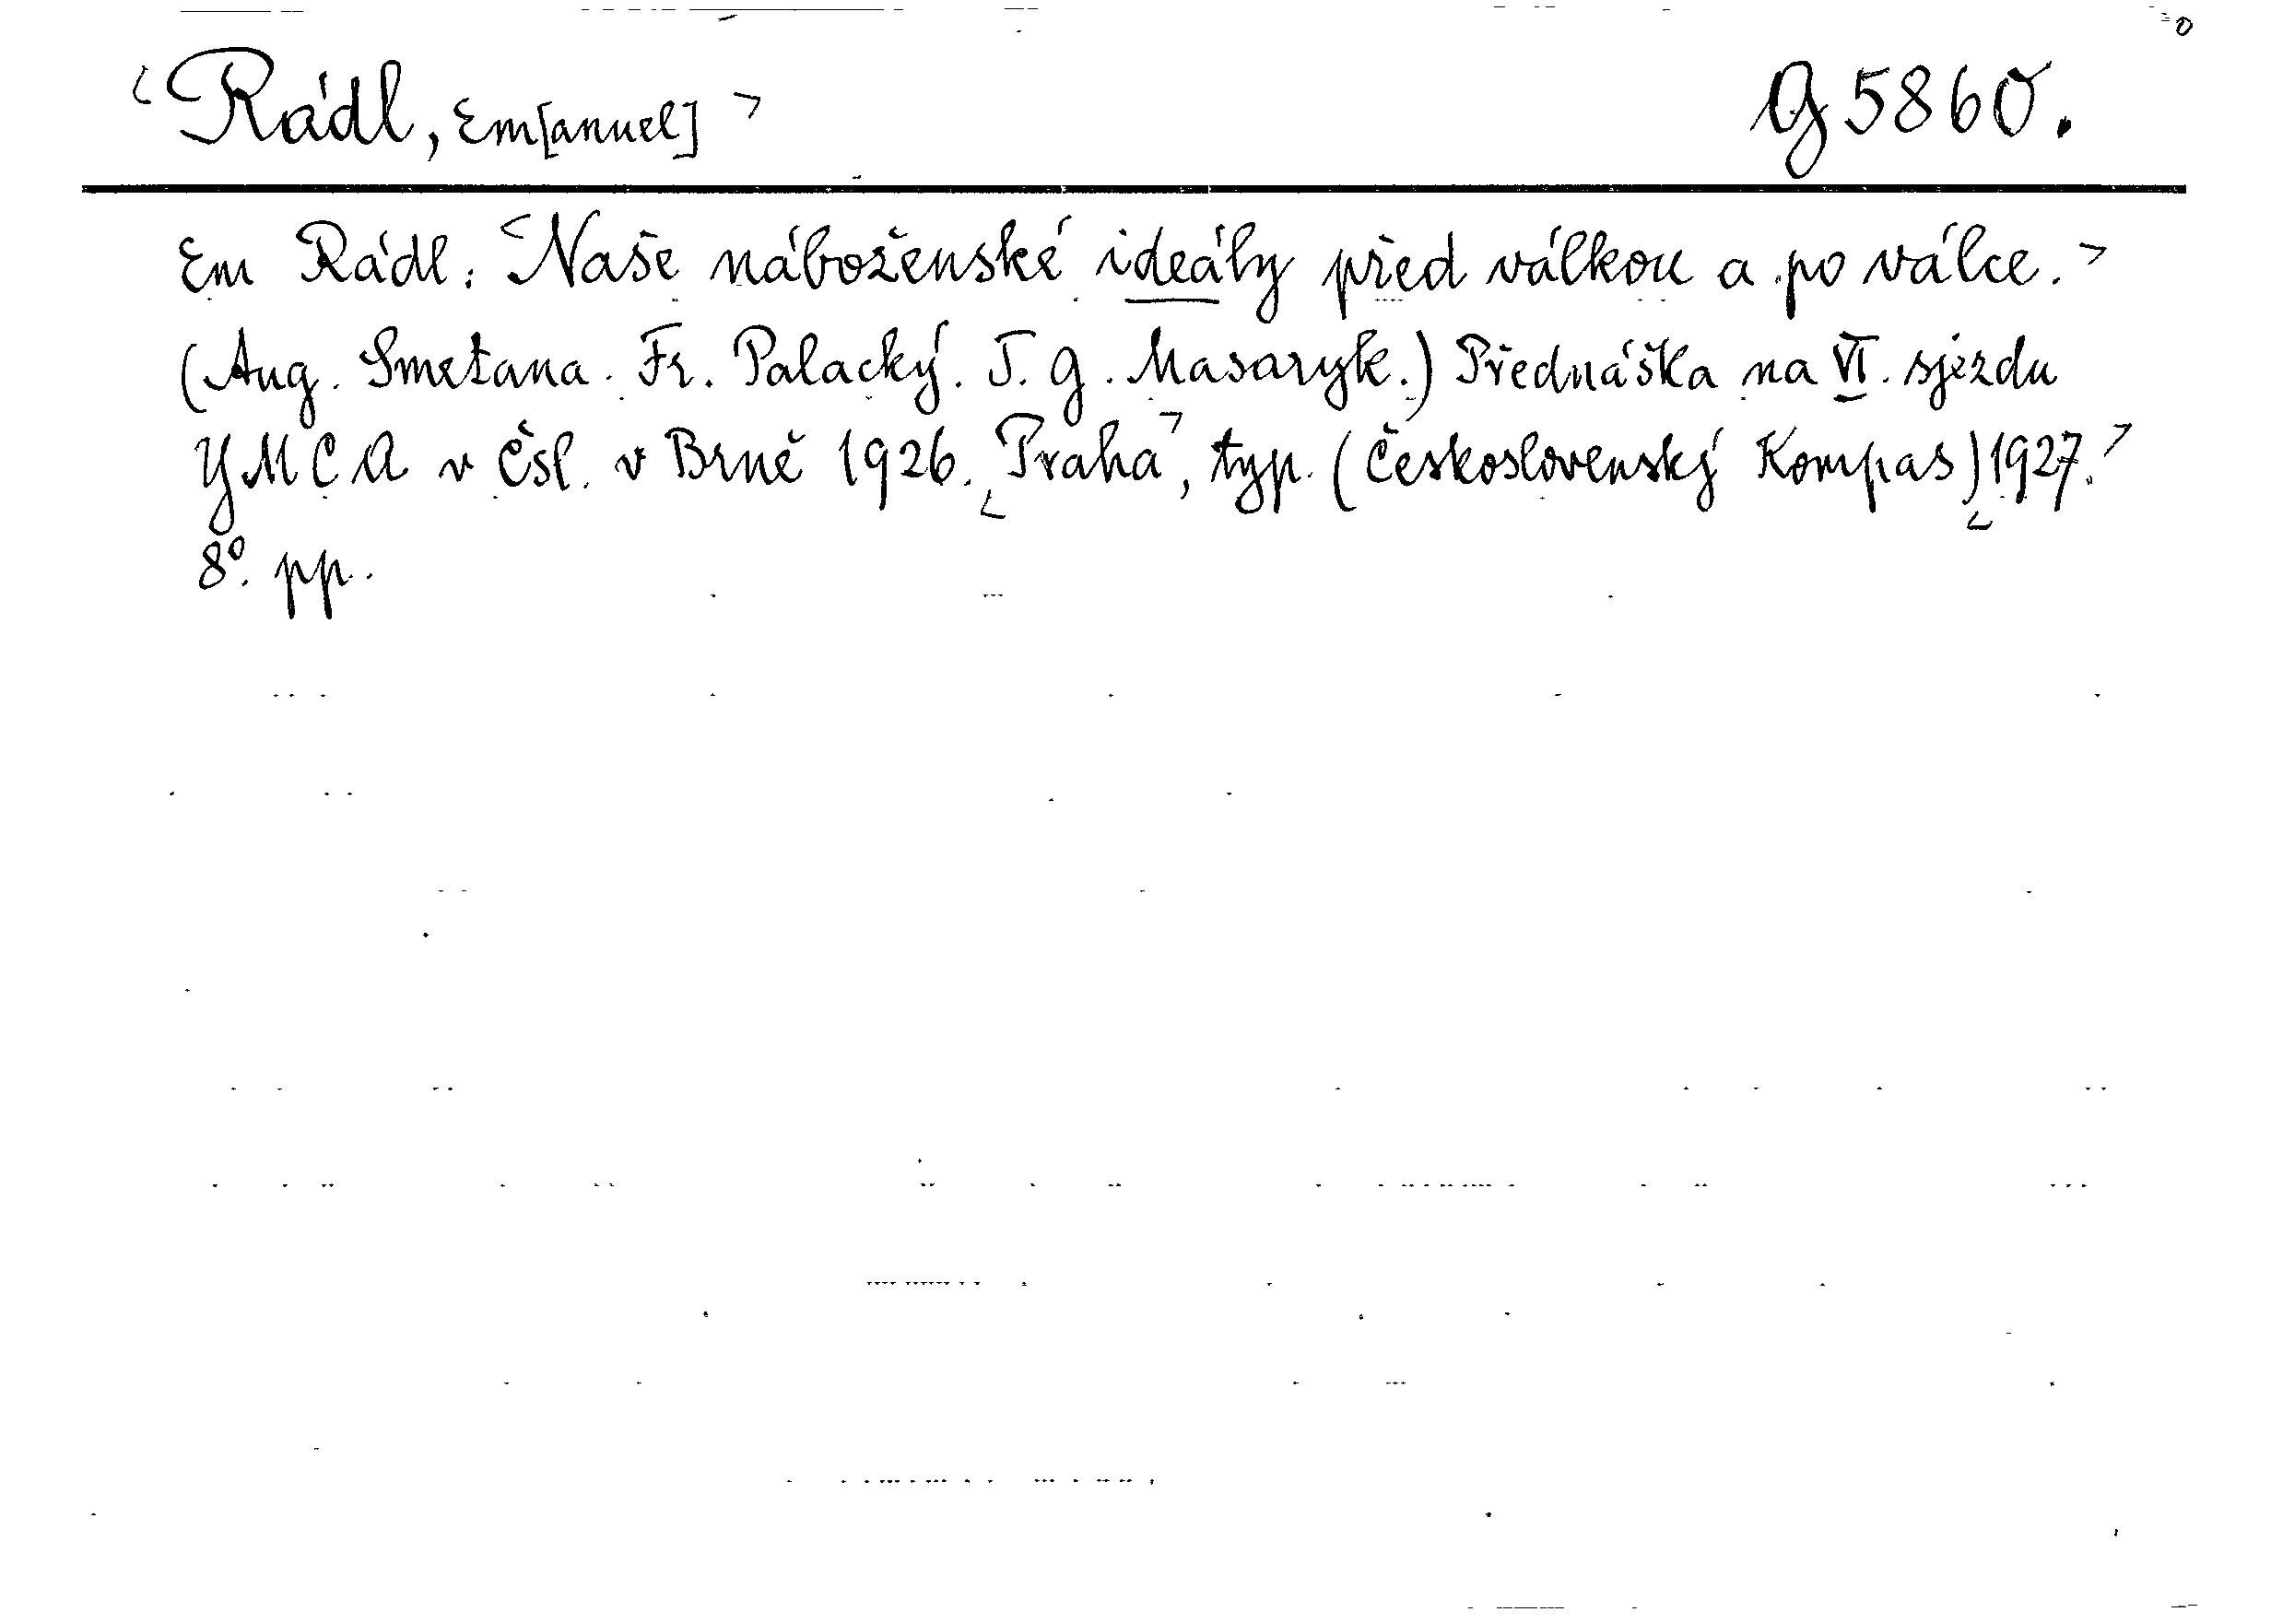 <Rádl, Em[anuel]> G 5860.
Em Rádl: <Naše náboženské ideály před válkou a po válce.>
(Aug. Smetana. Fr. Palacký. T. G. Masaryk.) Přednáška na VI. sjezdu
YMCA v Čsl. v Brně 1926. <Praha>, typ. (Československý Kompas) <1927.>
8°. pp..